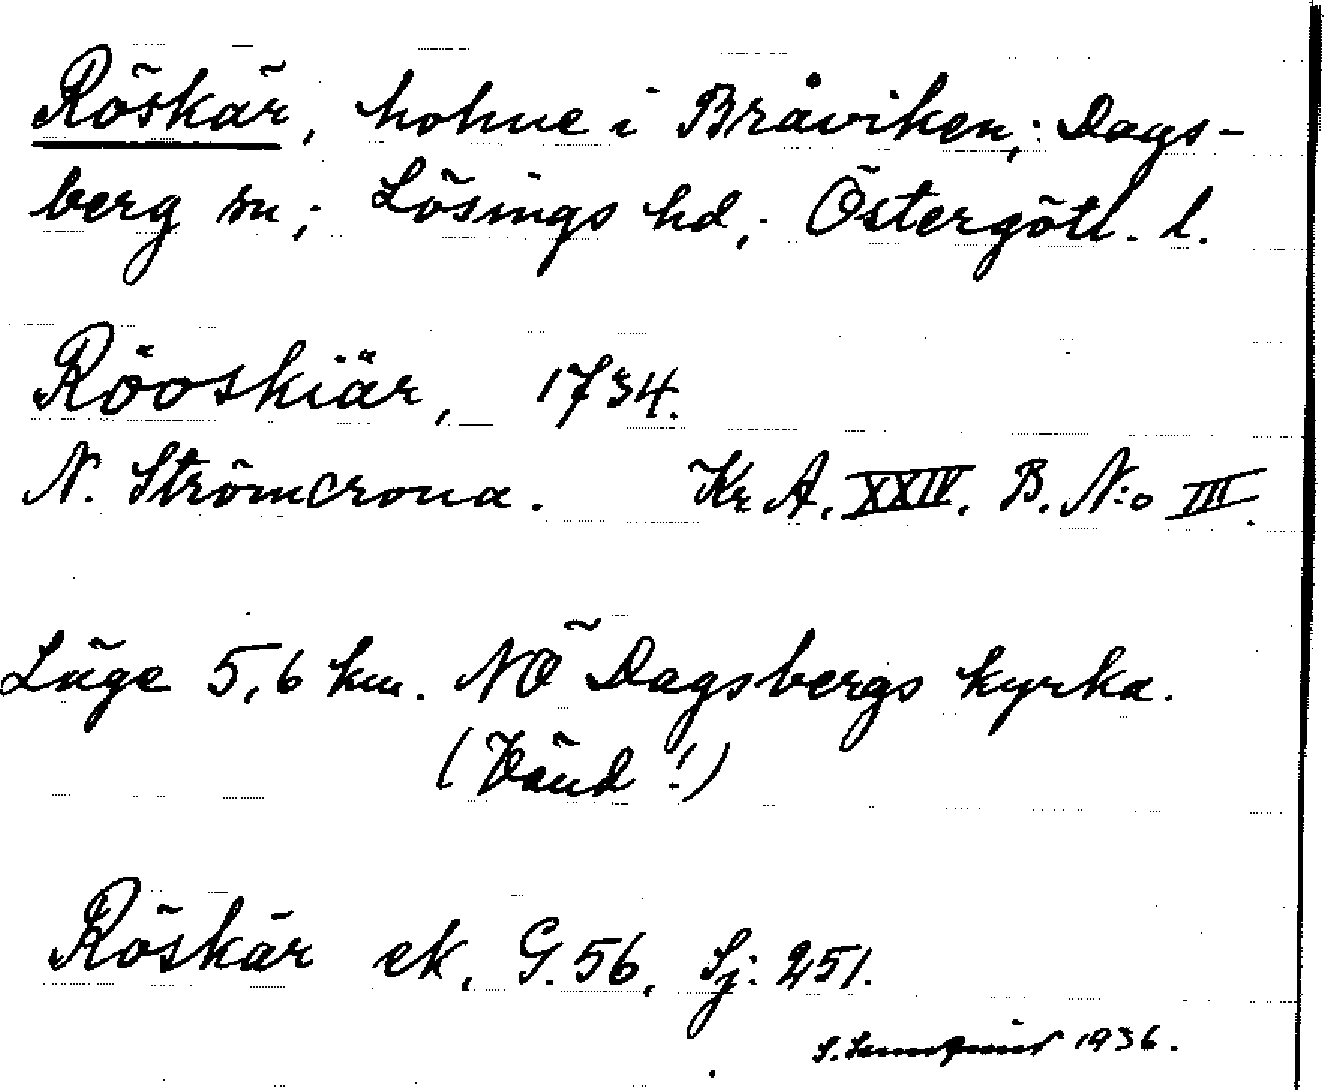 Röskär, holme i Bråviken; Dags-
berg sn; Lösings hd; Östergötl. l.
Röoskiär, 1734.
N. Strömcrona. Kr. A. XXIV. B. N:o III.
Läge 5,6 km. NÖ Dagsbergs kyrka.
(Vänd!)
Röskär ek. G. 56, Sj: 251.
1936.